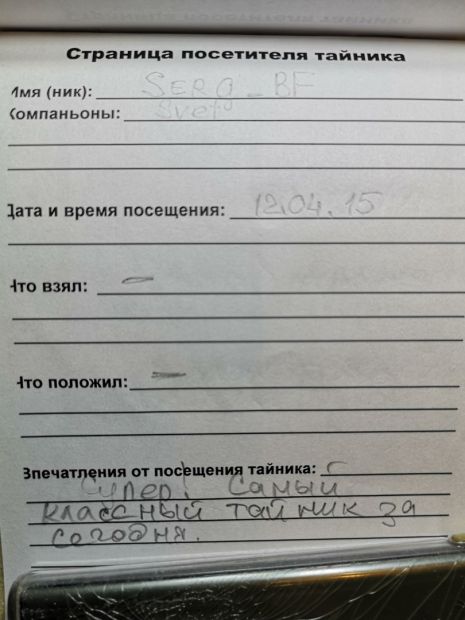 Страница посетителя тайника
Имя (ник): SERG_BF
Компаньоны: Sveto
Дата и время посещения: 12.04.15
Что взял: —
Что положил: —
Впечатления от посещения тайника:
Супер! Самый
классный тайник за
сегодня.